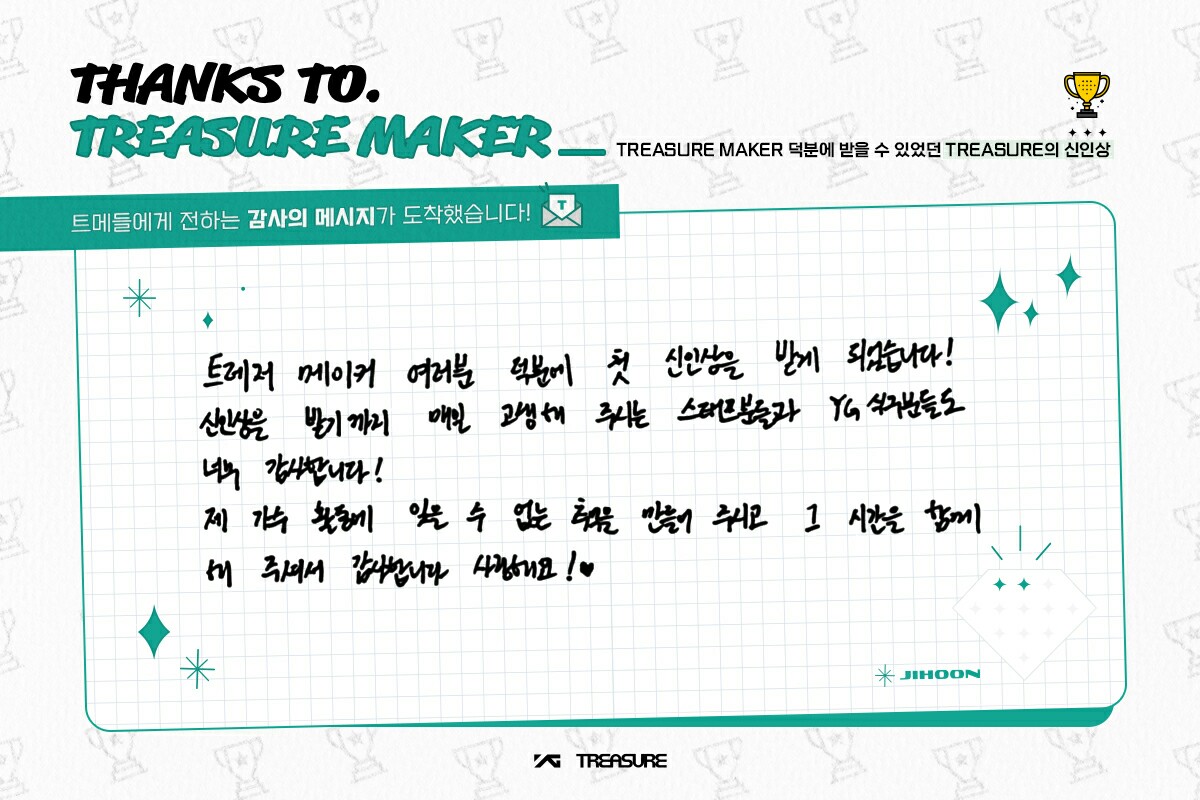 THANKS TO.
TREASURE MAKER
TREASURE MAKER 덕분에 받을 수 있었던 TREASURE의 신인상
트메들에게 전하는 감사의 메시지가 도착했습니다!
T
트레저 메이커 여러분 덕분에 첫 신인상을 받게 되었습니다!
신인상을 받기까지 매일 고생해 주시는 스태프분들과 YG 식구분들도
너무 감사합니다!
제 가수 활동에 잊을 수 없는 추억을 만들어 주시고 그 시간을 함께
해 주셔서 감사합니다 사랑해요!♥
JIHOON
YG TREASURE